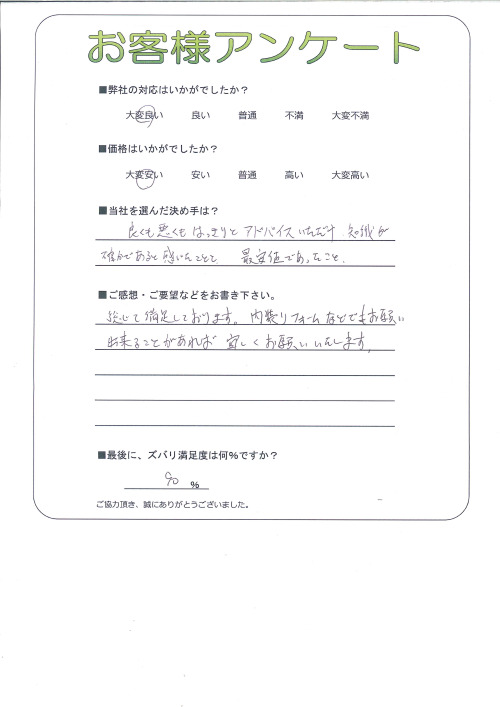 お客様アンケート
■弊社の対応はいかがでしたか？
大変良い 良い 普通 不満 大変不満
■価格はいかがでしたか？
大変安い 安い 普通 高い 大変高い
■当社を選んだ決め手は？
良くも悪くもはっきりとアドバイスいただけ、知識が
確かであると感じたことと 最安値であったこと。
■ご感想・ご要望などをお書き下さい。
総じて満足しております。内装リフォームなどでもお願い
出来ることがあれば宜しくお願いいたします。
■最後に、ズバリ満足度は何%ですか？
90 %
ご協力頂き、誠にありがとうございました。